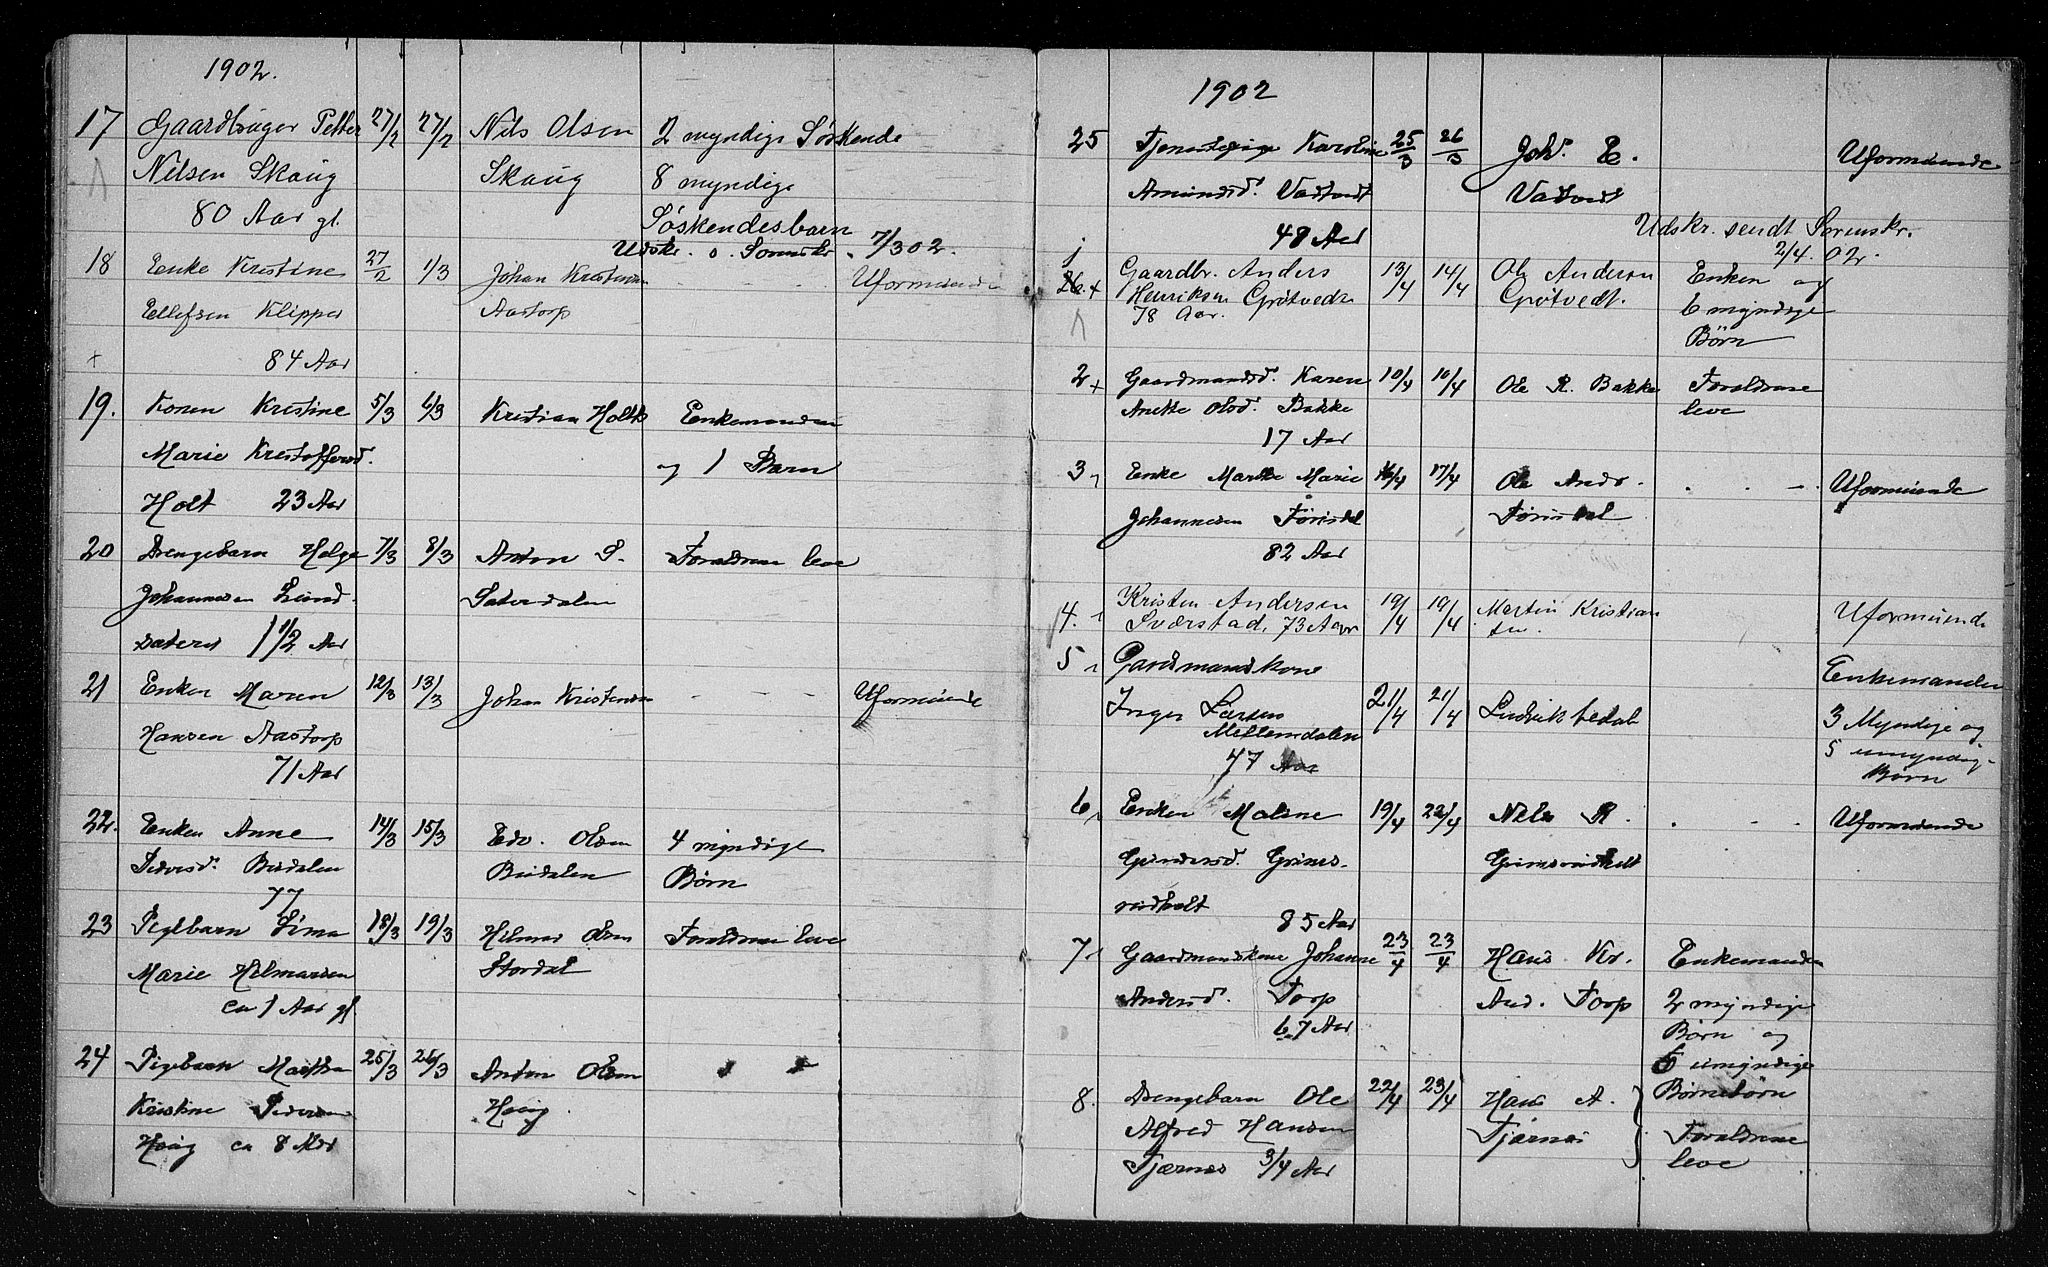 1902.
17 Gaardbruger Petter 27/2 27/2 Nils Olsen 2 myndige Søskende
Nilsen Skaug Skaug 8 myndige
80 Aar gl. Søskendesbarn
Udskr. s. Sorenskr. 7/3 02.
18 Enke Kristine 27/2 1/3 Johan Kristensen Uformuende
Ellefsen Klipper Aastorp
84 Aar
19. Konen Kristine 5/3 6/3 Kristian Holt Enkemanden
Marie Kristoffersd. og 1 Barn
Holt 23 Aar
20 Drengebarn Helge 7/3 8/3 Anton S. Forældrene leve
Johannesen Lund- Sæterdalen
sæteren 1 1/2 Aar
21 Enken Maren 12/3 13/3 Johan Kristensen - - - Uformuende
Hansen Aastorp
71 Aar
22. Enken Anne 14/3 15/3 Edv. Olsen 4 myndige
Pedersd. Budalen Budalen Børn
77
23 Pigebarn 18/3 19/3 Hilmar Olsen Forældrene leve
Marie Hilmarsen Stordal
ca 1 Aar gl
24 Pigebarn Martha 25/3 26/3 Anton Olsen " "
Kristine Pedersen Haug
Haug ca 8 Mdr
1902
25 Tjenestepige Karoline 25/3 26/3 Joh. E. Uformuende
Amundsd. Vastvedt Vastvedt
48 Aar Udskr. sendt Sorenskr.
2/4. 02.
1 Gaardbr. Anders 13/4 14/4 Ole Andersen Enken og
26. + Henriksen Grøtvedt Grøtvedt. 6 myndige
78 Aar. Børn
2 + Gaardmandsd. Karen 10/4 10/4 Ole R. Bakke Forældrene
Anette Olsd. Bakke leve
17 Aar
3 Enke Marthe Marie 16/4 17/4 Ole Ands. . . - . Uformuende
Johannesen Tørisdal Tørisdal
82 Aar
4. Kristen Andersen 19/4 19/4 Martin Kristian Uformuende
Sværstad, 73 Aar sen.
5 Gardmandskone Enkemanden
Inger Larsen 21/4 21/4 3 Myndige og
Mellemdalen 5 umyndig-
47 Aar Børn
6 Enken Maline 19/4 22/4 Nils R. . - - Uformuende
Gundersd. Grimes- Grimsrudholt
rudholt
85 Aar
7. Gaardmandskone Johanne 23/4 23/4 Hans Kr. Enkemanden
Andersd. Torp And. Torp 2 myndige
67 Aar Børn og
umyndige
8. Drengebarn Ole 22/4 23/4 Hans A. Børnebørn
Alfred Hansen Tjærnæs Forældrene
Tjærnæs 3/4 Aar leve